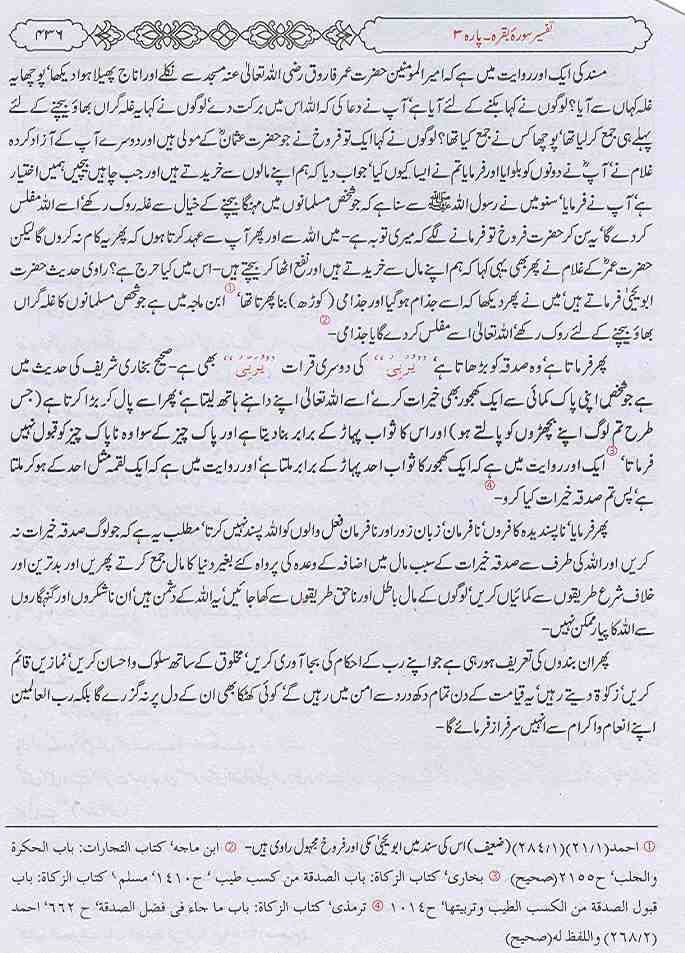 تفسیر سورۂ بقرہ۔ پارہ ۳
۴۳۶
مسند کی ایک اور روایت میں ہے کہ امیر المؤمنین حضرت عمر فاروق رضی اللہ تعالیٰ عنہ مسجد سے نکلے اور اناج پھیلا ہوا دیکھا‘ پوچھا یہ
غلہ کہاں سے آیا؟ لوگوں نے کہا بکنے کے لئے آیا ہے‘ آپ نے دعا کی کہ اللہ اس میں برکت دے‘ لوگوں نے کہا یہ غلہ گراں بھاؤ بیچنے کے لئے
پہلے ہی جمع کر لیا تھا‘ پوچھا کس نے جمع کیا تھا؟ لوگوں نے کہا ایک تو فروخ نے جو حضرت عثمانؓ کے مولی ہیں اور دوسرے آپ کے آزاد کردہ
غلام نے‘ آپؓ نے دونوں کو بلوایا اور فرمایا تم نے ایسا کیوں کیا‘ جواب دیا کہ ہم اپنے مالوں سے خریدتے ہیں اور جب چاہیں بیچیں ہمیں اختیار
ہے‘ آپ نے فرمایا‘ سنو میں نے رسول اللہ ﷺ سے سنا ہے کہ جو شخص مسلمانوں میں مہنگا بیچنے کے خیال سے غلہ روک رکھے‘ اسے اللہ مفلس
کر دے گا‘ یہ سن کر حضرت فروخ تو فرمانے لگے کہ میری توبہ ہے- میں اللہ سے اور پھر آپ سے عہد کرتا ہوں کہ پھر یہ کام نہ کروں گا لیکن
حضرت عمرؓ کے غلام نے پھر بھی یہی کہا کہ ہم اپنے مال سے خریدتے ہیں اور نفع اٹھا کر بیچتے ہیں- اس میں کیا حرج ہے؟ راوی حدیث حضرت
ابو یحییٰ فرماتے ہیں‘ میں نے پھر دیکھا کہ اسے جذام ہو گیا اور جذامی (کوڑھ) بنا پھرتا تھا‘ ① ابن ماجہ میں ہے جو شخص مسلمانوں کا غلہ گراں
بھاؤ بیچنے کے لئے روک رکھے‘ اللہ تعالیٰ اسے مفلس کر دے گا یا جذامی- ②
پھر فرماتا ہے‘ وہ صدقہ کو بڑھاتا ہے‘ ’’یُرْبِیْ‘‘ کی دوسری قرات ’’یُرَبِّیْ‘‘ بھی ہے- صحیح بخاری شریف کی حدیث میں
ہے جو شخص اپنی پاک کمائی سے ایک کھجور بھی خیرات کرے‘ اسے اللہ تعالیٰ اپنے داہنے ہاتھ لیتا ہے‘ پھر اسے پال کر بڑا کرتا ہے (جس
طرح تم لوگ اپنے بچھڑوں کو پالتے ہو) اور اس کا ثواب پہاڑ کے برابر بنا دیتا ہے اور پاک چیز کے سوا وہ ناپاک چیز کو قبول نہیں
فرماتا‘ ③ ایک اور روایت میں ہے کہ ایک کھجور کا ثواب احد پہاڑ کے برابر ملتا ہے‘ اور روایت میں ہے کہ ایک لقمہ مثل احد کے ہو کر ملتا
ہے‘ پس تم صدقہ خیرات کیا کرو- ④
پھر فرمایا‘ ناپسندیدہ کافروں‘ نافرمان‘ زبان زور اور نافرمان فعل والوں کو اللہ پسند نہیں کرتا‘ مطلب یہ ہے کہ جو لوگ صدقہ خیرات نہ
کریں اور اللہ کی طرف سے صدقہ خیرات کے سبب مال میں اضافہ کے وعدہ کی پرواہ کئے بغیر دنیا کا مال جمع کرتے پھریں اور بدترین اور
خلاف شرع طریقوں سے کمائیاں کریں‘ لوگوں کے مال باطل اور ناحق طریقوں سے کھا جائیں‘ یہ اللہ کے دشمن ہیں‘ ان ناشکروں اور گنہگاروں
سے اللہ کا پیار ممکن نہیں-
پھر ان بندوں کی تعریف ہو رہی ہے جو اپنے رب کے احکام کی بجا آوری کریں‘ مخلوق کے ساتھ سلوک و احسان کریں‘ نمازیں قائم
کریں‘ زکوٰۃ دیتے رہیں‘ یہ قیامت کے دن تمام دکھ درد سے امن میں رہیں گے‘ کوئی کھٹکا بھی ان کے دل پر نہ گزرے گا بلکہ رب العالمین
اپنے انعام و اکرام سے انہیں سرفراز فرمائے گا-
① احمد(۲۱/۱)(۲۸۴/۱)(ضعیف) اس کی سند میں ابو یحییٰ مکی اور فروخ مجہول راوی ہیں- ② ابن ماجه‘ کتاب التجارات: باب الحکرة
والجلب‘ ح۲۱۵۵(صحیح) ③ بخاری‘ کتاب الزکاة: باب الصدقة من کسب طیب‘ ح۱۴۱۰‘ مسلم‘ کتاب الزکاة: باب
قبول الصدقة من الکسب الطیب وتربیتها‘ ح۱۰۱۴ ④ ترمذی‘ کتاب الزکاة: باب ما جاء فی فضل الصدقة‘ ح ۶۶۲‘ احمد
(۲۶۸/۲) واللفظ له(صحیح)